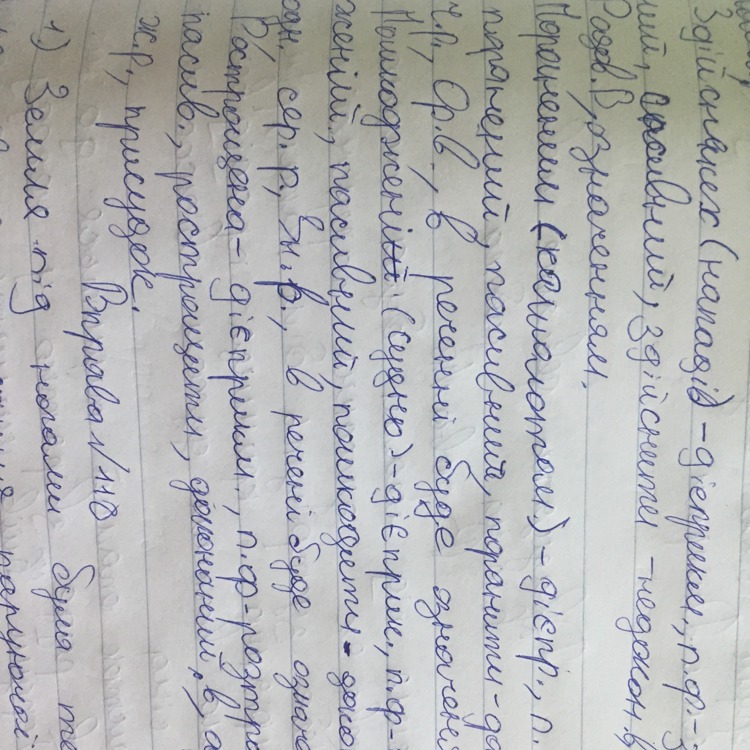 Здійснених (нападів) - дієприкм., п.ф -
ний, пасивний, здійснити - недокон. в
Родв. В, означенням.
Пораненим (капшалотом) - дієпр., п.
поранений, пасивний, поранити - до
ч.р., Ор.в., в реченні буде означені
Пошкоджений (судно) - дієприк., п.ф -
жений, пасивний, пошкодити - доко
сер. р., Зн. в., в речені буде означ
Розтрощена - дієприкм., п.ф - розтро
пасив., розтрощити, доконаний в
ж.р., присудок.
Вправа №118
1) Земля під ногами була те